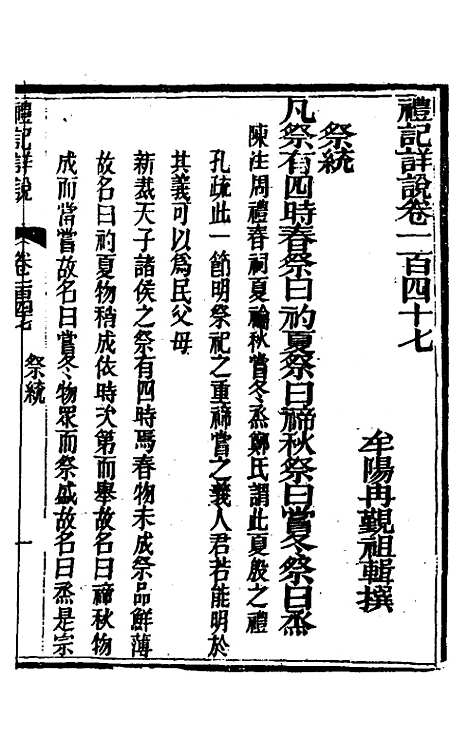 禮記詳說卷一百四十七
牟陽冉覲祖輯撰
祭統
凡祭有四時春祭曰礿夏祭曰禘秋祭曰嘗冬祭曰烝
陳注周禮春祠夏禴秋嘗冬烝鄭氏謂此夏殷之禮
孔疏此一節明祭祀之重禘嘗之義人君若能明於
其義可以為民父母
新裁天子諸侯之祭有四時焉春物未成祭品鮮薄
故名曰礿夏物稍成依時次第而舉故名曰禘秋物
成而當嘗故名曰嘗冬物眾而祭盛故名曰烝是宗
禮記詳說
卷一百四十七
祭統
一